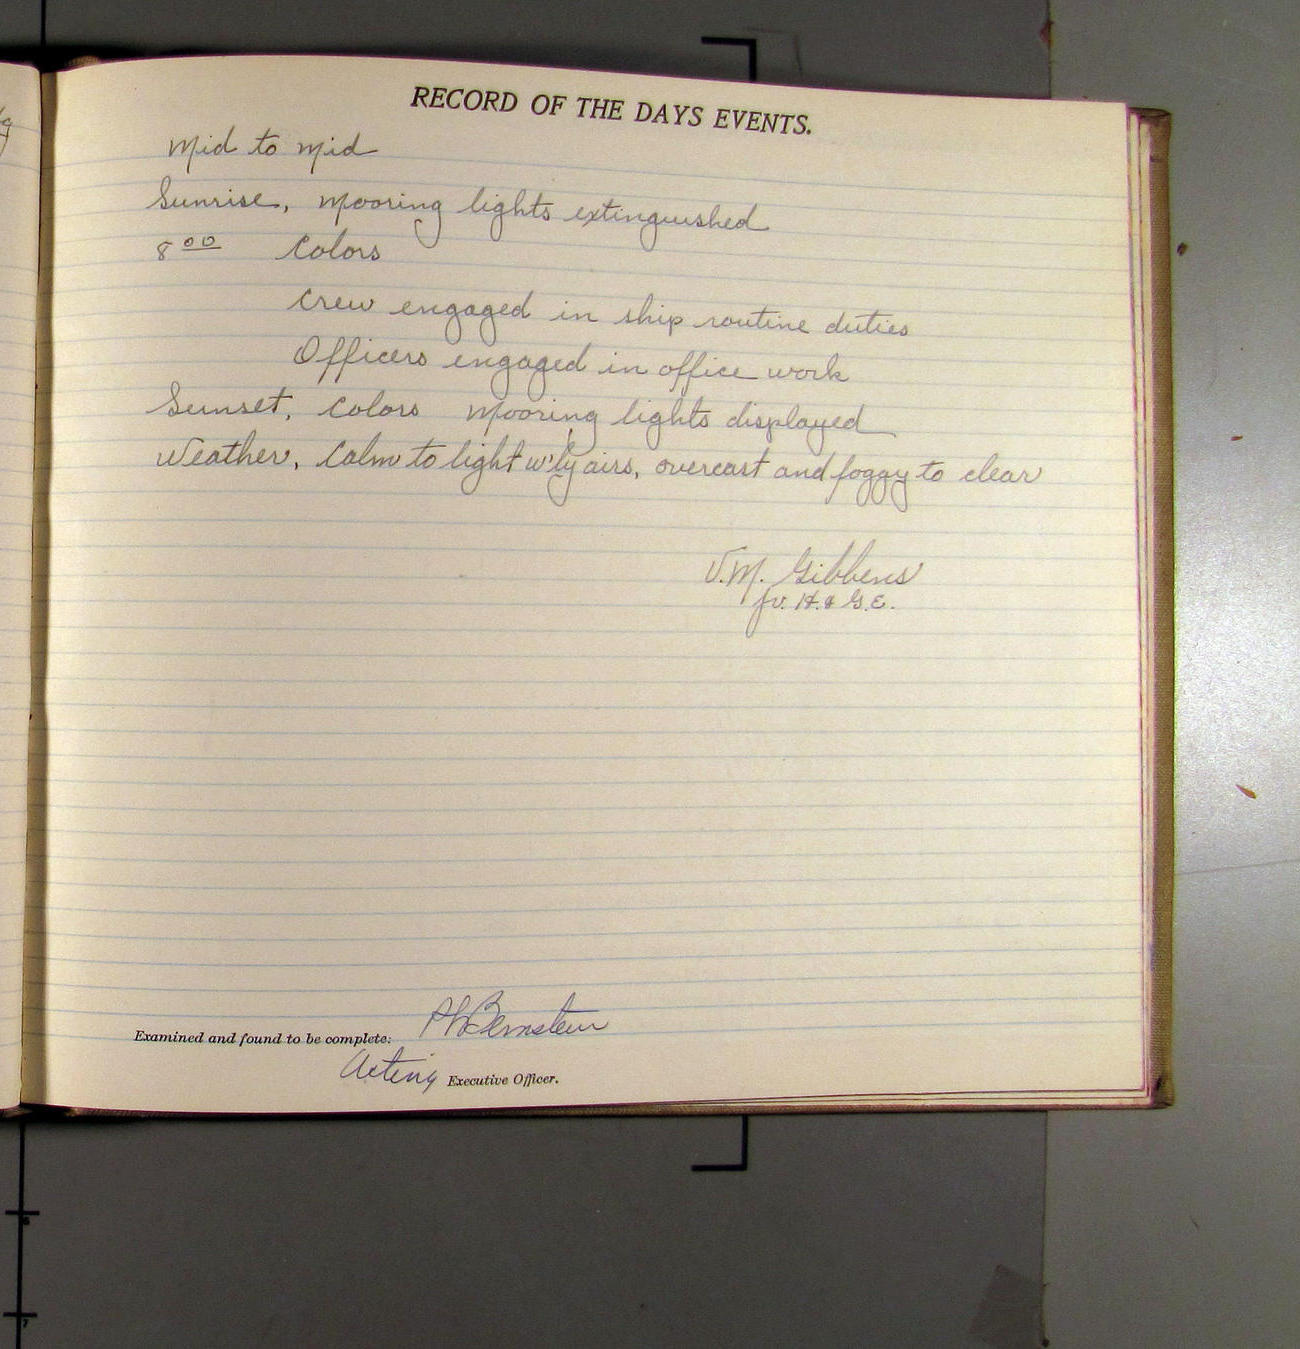 RECORD OF THE DAYS EVENTS.
Mid to Mid
Sunrise, Mooring lights extinguished
8 00 Colors
Crew engaged in ship routine duties
Officers engaged in office work
Sunset, Colors Mooring lights displayed
Weather, Calm to light w'ly airs, overcast and foggy to clear
V.M. Gibbens
Jr. H. & G.E.
Examined and found to be complete: Bernstein
Acting Executive Officer.
6
7